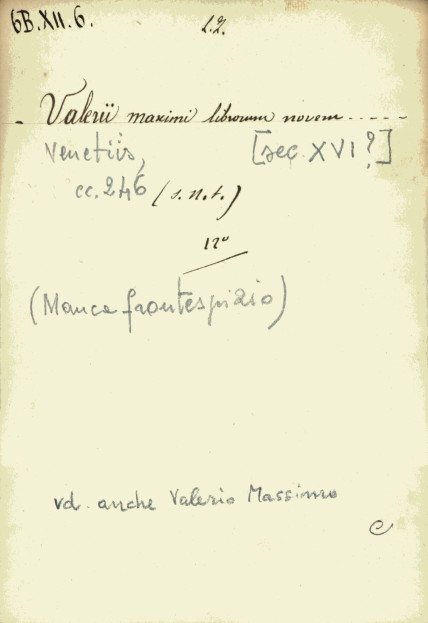 6B.XII.6.
L.2.
- Valerii maximi librorum novem.....--
Venetiis, [sec. XVI?]
cc. 246 (s.n.t.)
12º
(Manca frontespizio)
vd. anche Valerio Massimo
e